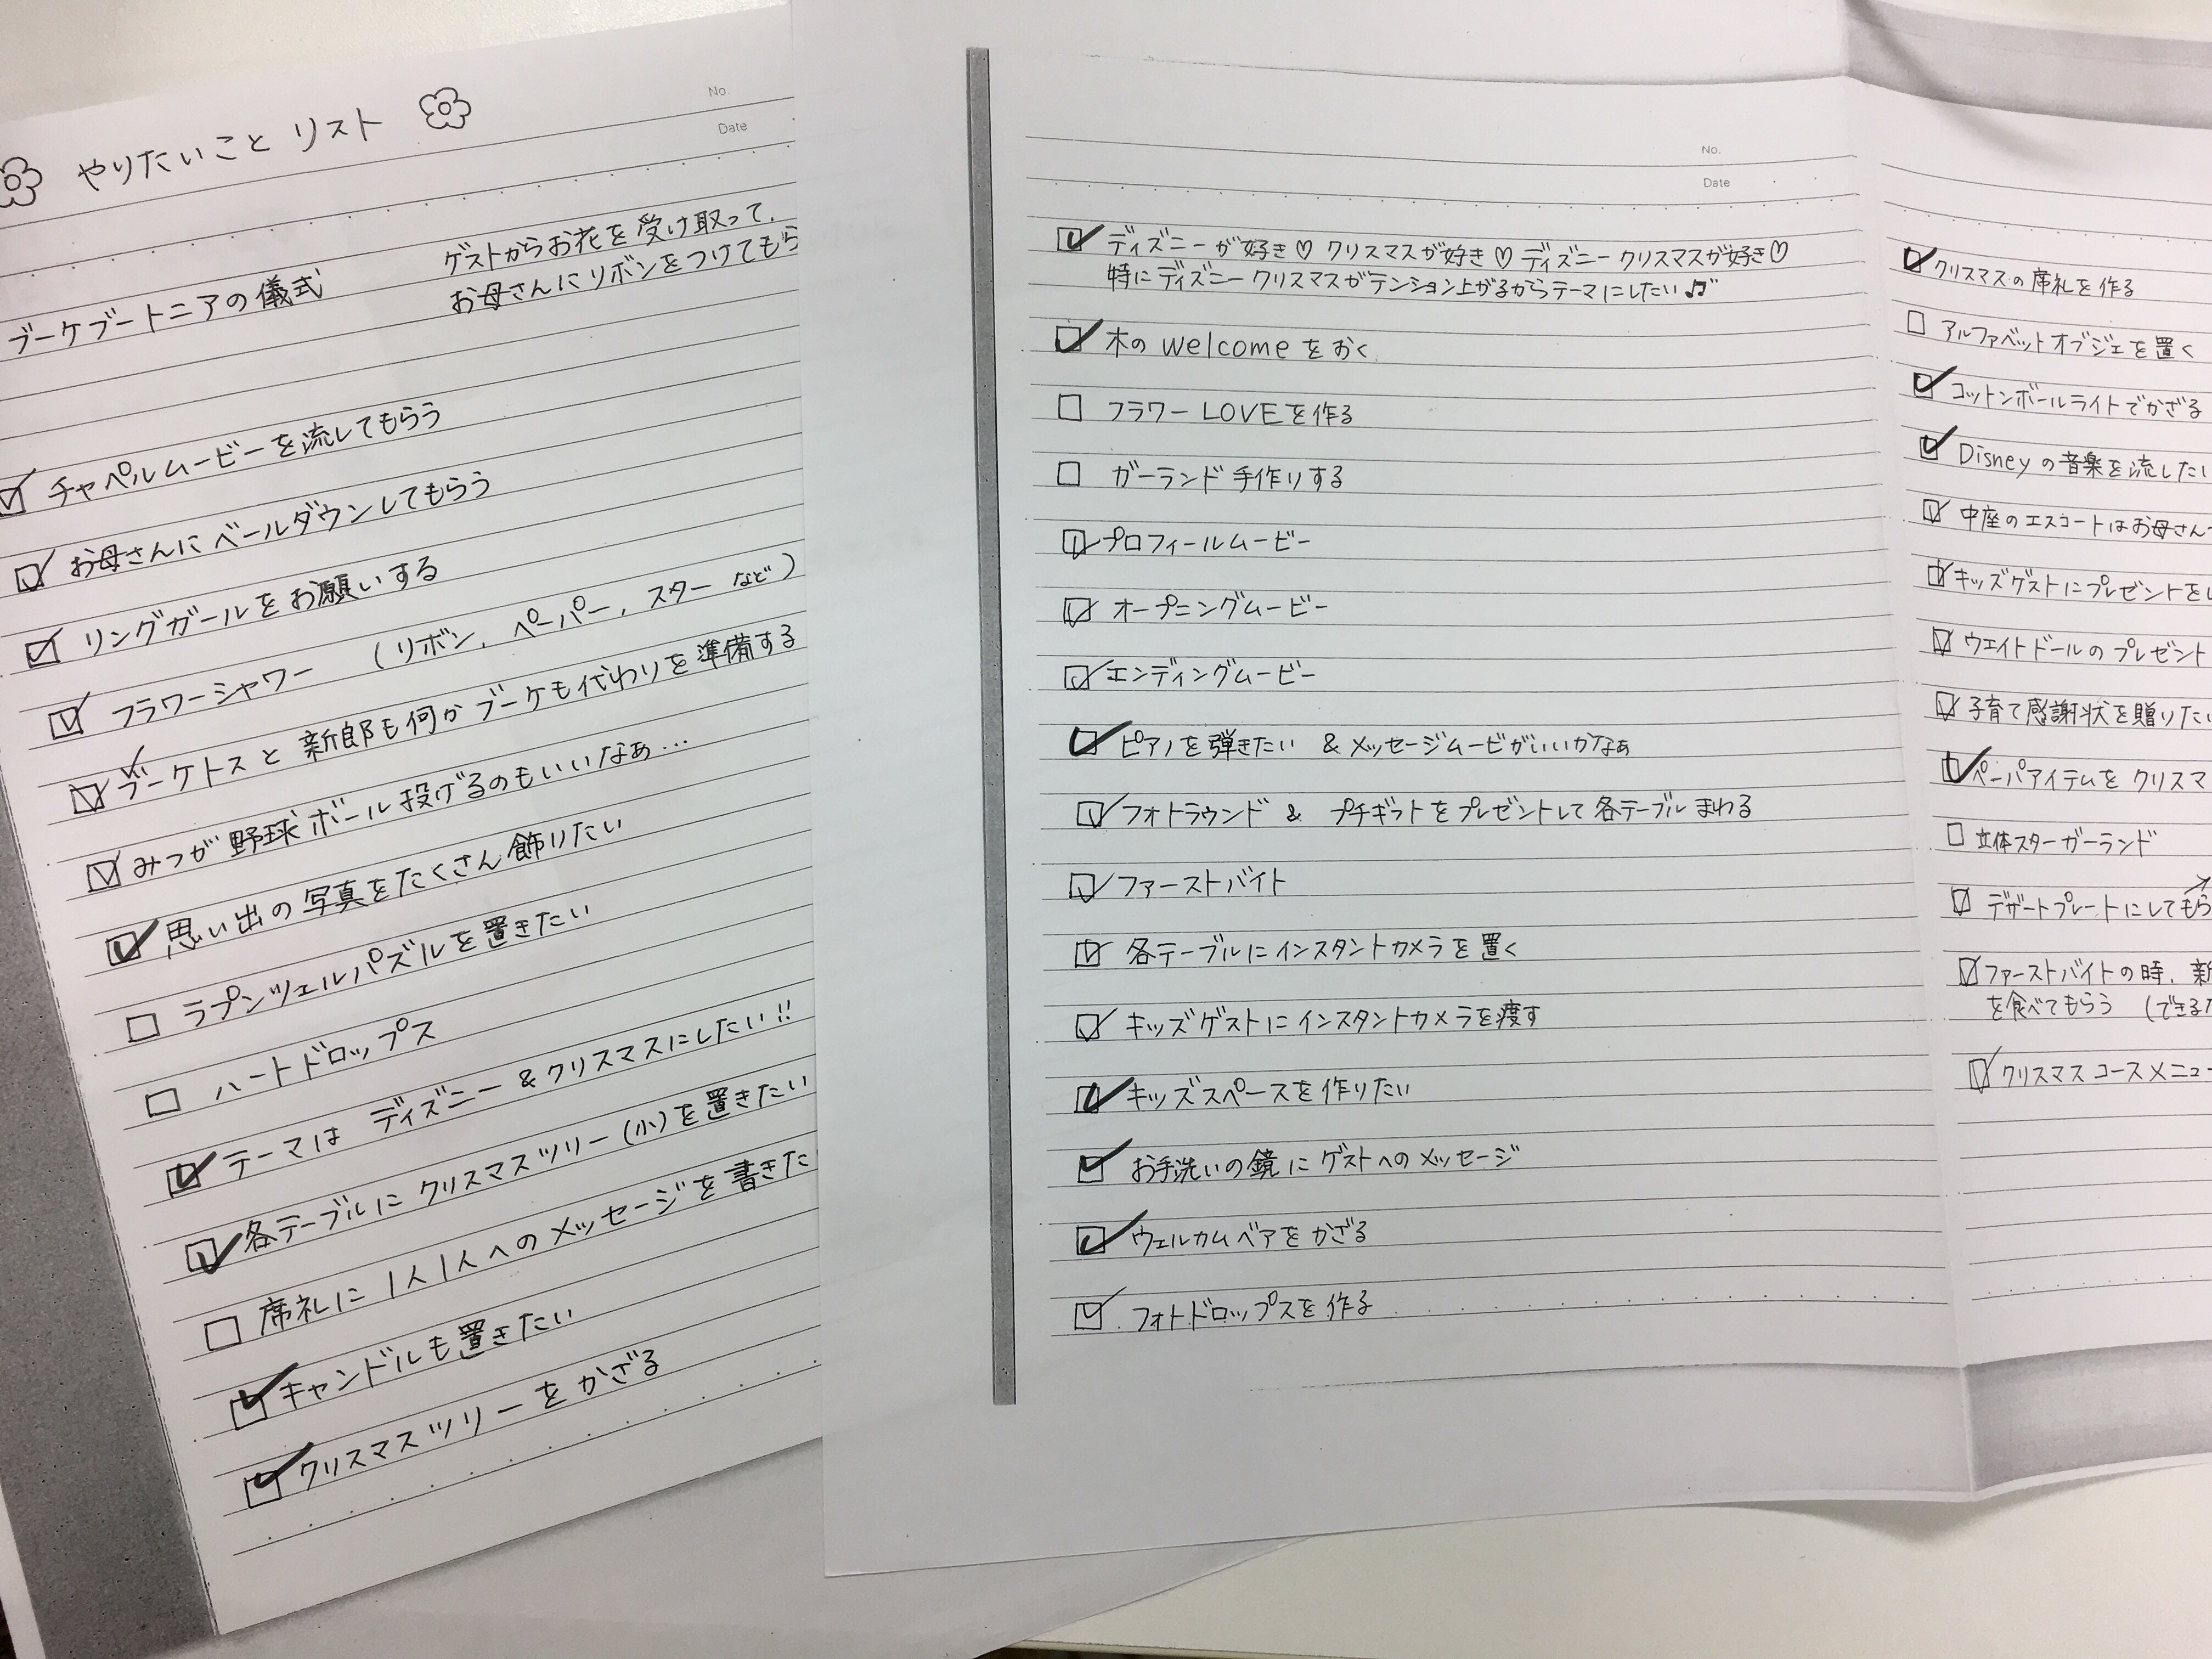 やりたいこと リスト
No.
Date
ブーケブートニアの儀式
ゲストからお花を受け取って、
お母さんにリボンをつけてもら
チャペルムービーを流してもらう
お母さんにベールダウンしてもらう
リングガールをお願いする
フラワーシャワー (リボン、ペーパー、スター など)
ブーケトスと新郎も何かブーケも代わりを準備する
みつが野球ボール投げるのもいいなぁ…
思い出の写真をたくさん飾りたい
ラプンツェルパズルを置きたい
ハートドロップス
テーマは ディズニー&クリスマスにしたい!!
各テーブルにクリスマスツリー(小)を置きたい
席札に1人1人へのメッセージを書きた
キャンドルも置きたい
クリスマスツリーをかざる
No.
Date
ディズニーが好き♡クリスマスが好き♡ディズニークリスマスが好き♡
特にディズニークリスマスがテンション上がるからテーマにしたい♫
木の welcome をおく
フラワー LOVEを作る
ガーランド手作りする
プロフィールムービー
オープニングムービー
エンディングムービー
ピアノを弾きたい &メッセージムービがいいかなぁ
フォトラウンド & プチギフトをプレゼントして各テーブルまわる
ファーストバイト
各テーブルにインスタントカメラを置く
キッズゲストにインスタントカメラを渡す
キッズスペースを作りたい
お手洗いの鏡にゲストへのメッセージ
ウェルカムベアをかざる
フォトドロップスを作る
クリスマスの席札を作る
アルファベットオブジェを置く
コットンボールライトでかざる
Disneyの音楽を流したい
中座のエスコートはお母さん
キッズゲストにプレゼントを
ウエイトドールのプレゼント
子育て感謝状を贈りたい
ペーパアイテムをクリスマ
立体スターガーランド
デザートプレートにしてもら
ファーストバイトの時、新
を食べてもらう (できるた
クリスマスコースメニュー